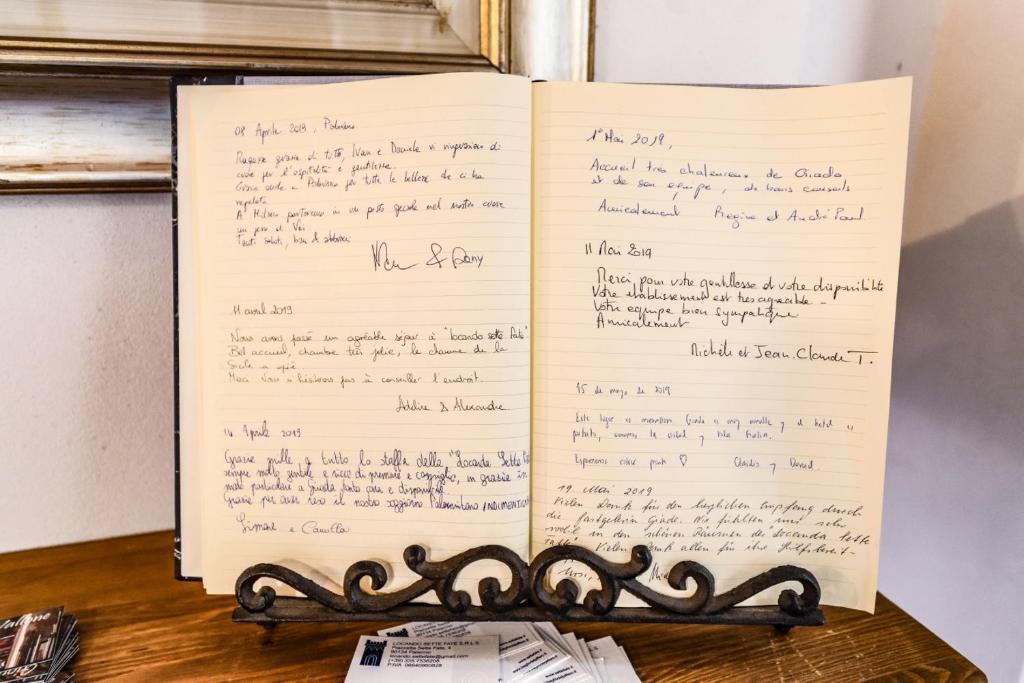 08 Aprile 2019, Palermo
Ragazze grazie di tutto, Ivan e Daniele vi ringraziano di
cuore per l'ospitalità e gentilezza.
Grazie anche a Palermo per tutte le bellezze che ci ha
regalato
A Milano porteremo in un posto speciale nel nostro cuore
un pezzo di Voi
Tanti saluti, baci & abbracci
& Dany
11 avril 2019
Nous avons passé un agréable séjour à "locando sette Fate"
Bel accueil, chambre très jolie, le charme de la
Sicile a opéré.
Merci Nous n'hésiterons pas à conseiller l'endroit.
Adeline & Alexandre
14 Aprile 2019
Grazie mille a tutto lo staff della "Locanda Sette
sempre molto gentile e ricco di premure e consigli, in grazie in
modo particolare a Giada tanto cara e disponibile.
Grazie per aver reso il nostro soggiorno Palermitano INDIMENTICA
Simone e Camilla
1° Mai 2019,
Accueil très chaleureux de Giada
et de son équipe, de bons conseils
Amicalement Regine et André Paul
11 Mai 2019
Merci pour votre gentillesse et votre disponibilité
Votre établissement est très agréable -
Votre equipe bien sympatique
Amicalement
Michèle et Jean.Claude T.
15 de mayo de 2019
Este lugar es maravilloso Giada es muy amable y el hotel es
perfecto, la ciudad y
Esperamos volver pronto ♡ Claudia y David.
19. Mai 2019
Vielen Dank für den herzlichen Empfang durch
die Gastgeberin Giade. Wir fühlten uns sehr
wohl in den schönen Räumen des Locanda Sette
Fate. Vielen Dank allen für ihre Hilfsbereit-
LOCANDO SETTE FATE S.R.L.S
Piazzetta Sette Fate, 4
90134 Palermo
locando.settefate@gmail.com
(+39) 335 7536208
P.IVA 06640960828